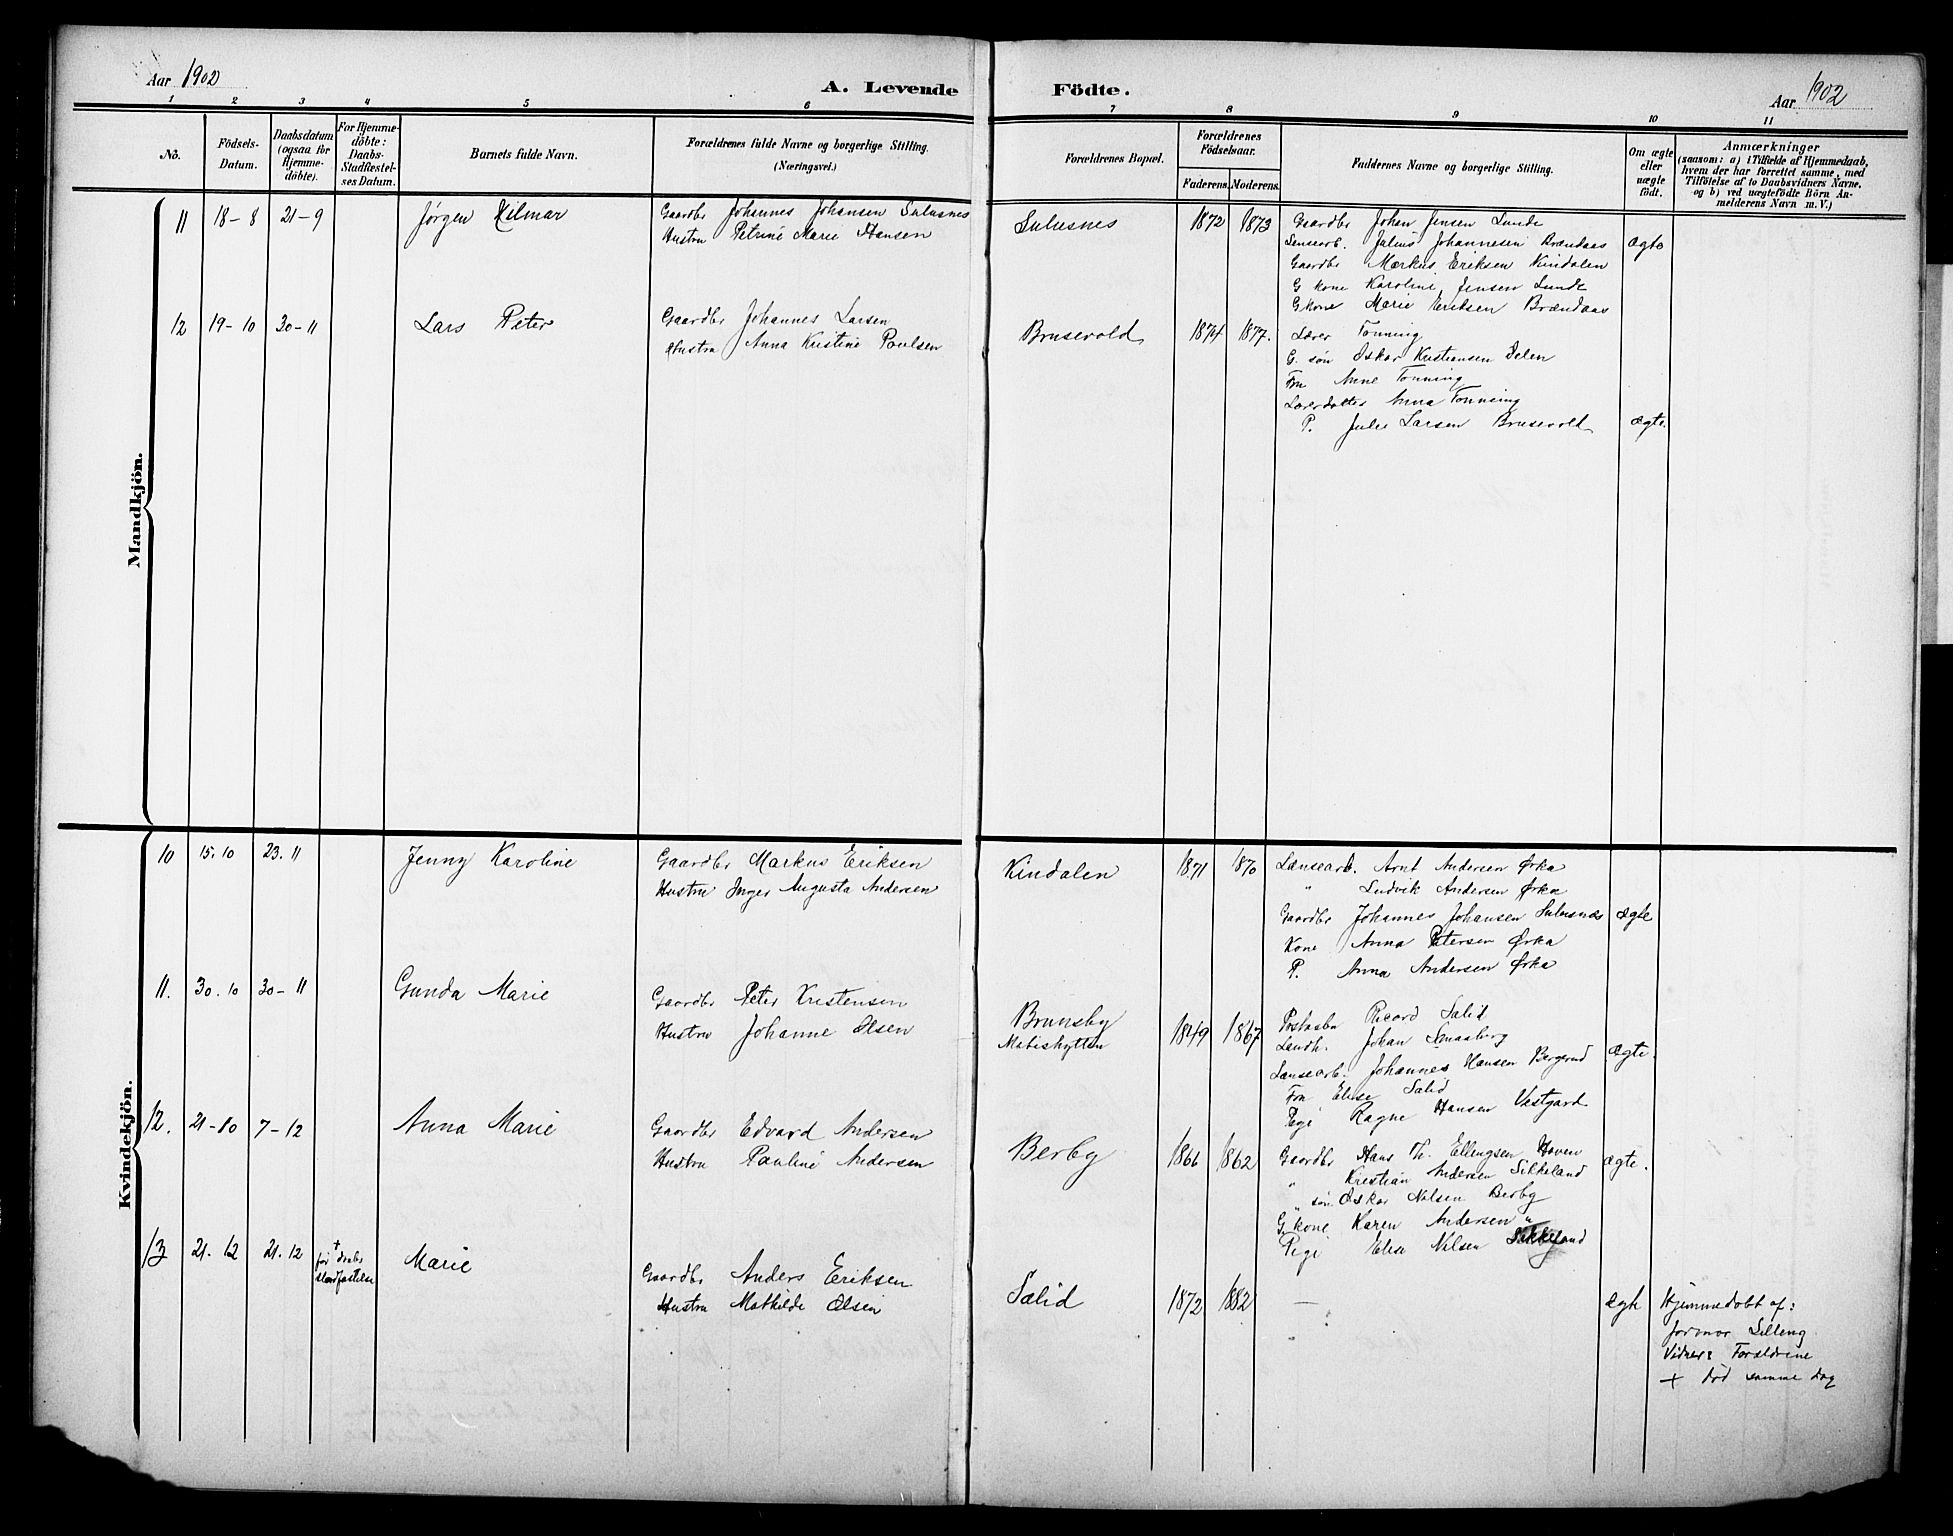 Aar 1902
A. Levende Födte.
Aar 1902
1 2 3 4 5 6 7 8 9 10 11
No.
Födsels-
Datum.
Daabsdatum
(ogsaa for
Hjemme-
döbte).
For Hjemme-
döbte:
Daabs-
Stadfæstel-
ses Datum.
Barnets fulde Navn.
Forældrenes fulde Navne og borgerlige Stilling.
(Næringsvei.)
Forældrenes Bopæl.
Forældrenes
Födselsaar.
Faderens. Moderens.
Faddernes Navne og borgerlige Stilling.
Om ægte
eller
uægte
födt.
Anmærkninger
(saasom: a) i Tilfælde af Hjemmedaab,
hvem der har forrettet samme, med
Tilföielse af to Daabsvidners Navne,
og b) ved uægtefödte Börn An-
melderens Navn m. V.)
Mandkjön.
11 18-8 21-9 Jørgen Hilmar
Gaardbr Johannes Johansen Sulusnes
Hustru Petrine Marie Hansen
Sulusnes 1872 1873
Gaardbr Johan Jensen Lunde
Lænsearb. Julius Johannesen Brændaas
Gaardbr Markus Eriksen Kindalen
G kone Karoline Jensen Lunde
Gkone Marie Eriksen Brændaas
ægte
12 19-10 30-11 Lars Peter
Gaardbr Johannes Larsen
Hustru Anna Kristine Poulsen
Brusevold 1874 1877.
Lærer Tonning
G. søn Oskar Kristiansen Delen
Fru Anne Tonning
Lærerdatter Anna Tonning
P. Julie Larsen Brusevold
ægte.
Kvindekjön.
10 15.10 23.11 Jenny Karoline
Gaardbr Markus Eriksen
Hustru Inger Augusta Andersen
Kindalen 1871 1870
Lænsearb. Arnt Andersen Ørka
" Ludvik Andersen Ørka
Gaardbr Johannes Johansen Sulusnæs
Kone Anna Petersen Ørka
P. Anna Andersen Ørka
ægte
11. 30.10 30-11 Gunda Marie
Gaardbr Peter Kristensen
Hustru Johanne Olsen
Brunsby
1849 1867
Ricard Sælid
Landh. Johan Smaaberg
Lænsearb. Johannes Hansen Bergerud
Fru Elise Sælid
Pige Ragne Hansen Vestgard
ægte.
12. 21-10 7-12 Anna Marie
Gaardbr Edvard Andersen
Hustru Pauline Andersen
Berby 1866 1862
Gaardbr Hans Th. Ellingsen Hoven
" Kristian Andersen Sikkeland
" søn Oskar Nilsen Berby
G.kone Karen Andersen "
Pige Elise Nilsen Sikkeland
ægte.
13 21.12 21.12
† før daabs
stadfæstelse
Marie
Gaardbr Anders Eriksen
Hustru Mathilde Olsen
Sælid 1872 1882
—
ægte
Hjemmedøbt af:
Jormor Selleng
Vidner: Forældrene
+ død samme dag